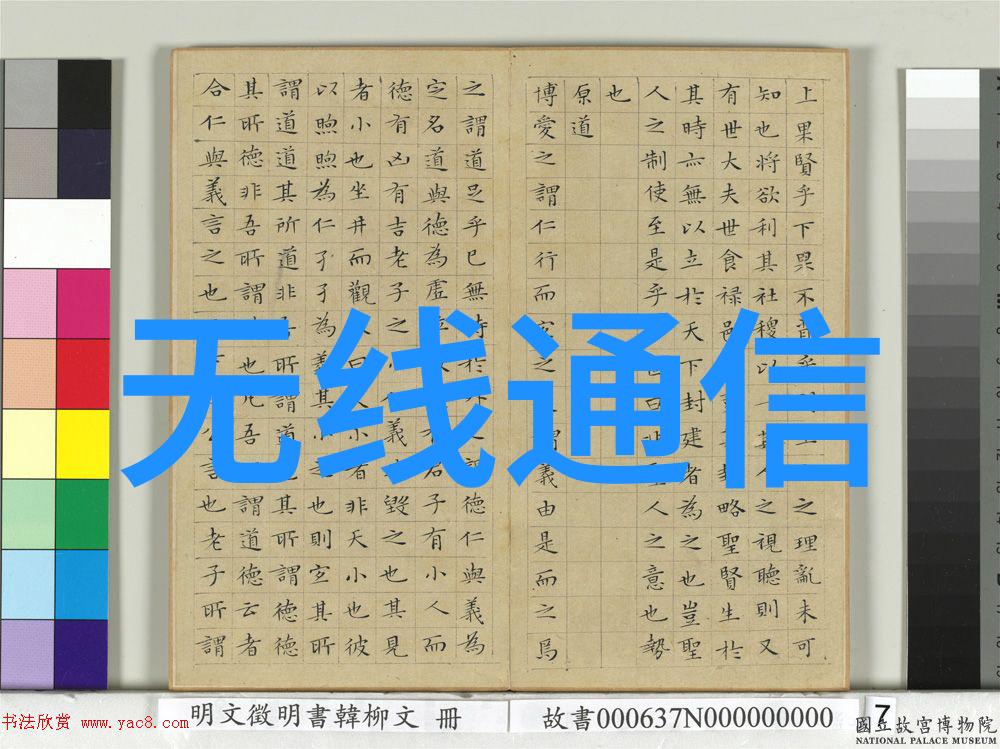 上果賢乎下果不肖乎之理亂未可
知也將欲利其社稷以一其人之視聽則又
有世大夫世食祿邑封略聖賢生於
其時亦無以立於天下封建者為之也豈聖
人之制使至是乎曰非聖人之意也勢
也
原道
博愛之謂仁行而宜之之謂義由是而之焉
之謂道足乎已無待於外之謂德仁與義為
定名道與德為虛位有君子有小人而
德有凶有吉老子之小仁義毀之也其見
者小也坐井而觀天曰天小者非天小也彼
以煦煦為仁孑孑為義其小之也則宜其所
謂道道其所道非吾所謂道也其所謂德德
其所德非吾所謂德也凡吾所謂道德云者
合仁與義言之也天下之公言也老子所謂
无线通信
明文徵明書韓柳文 冊
故書000637N000000000
7
书法欣赏 www.yac8.com
國立故宮博物院
NATIONAL PALACE MUSEUM